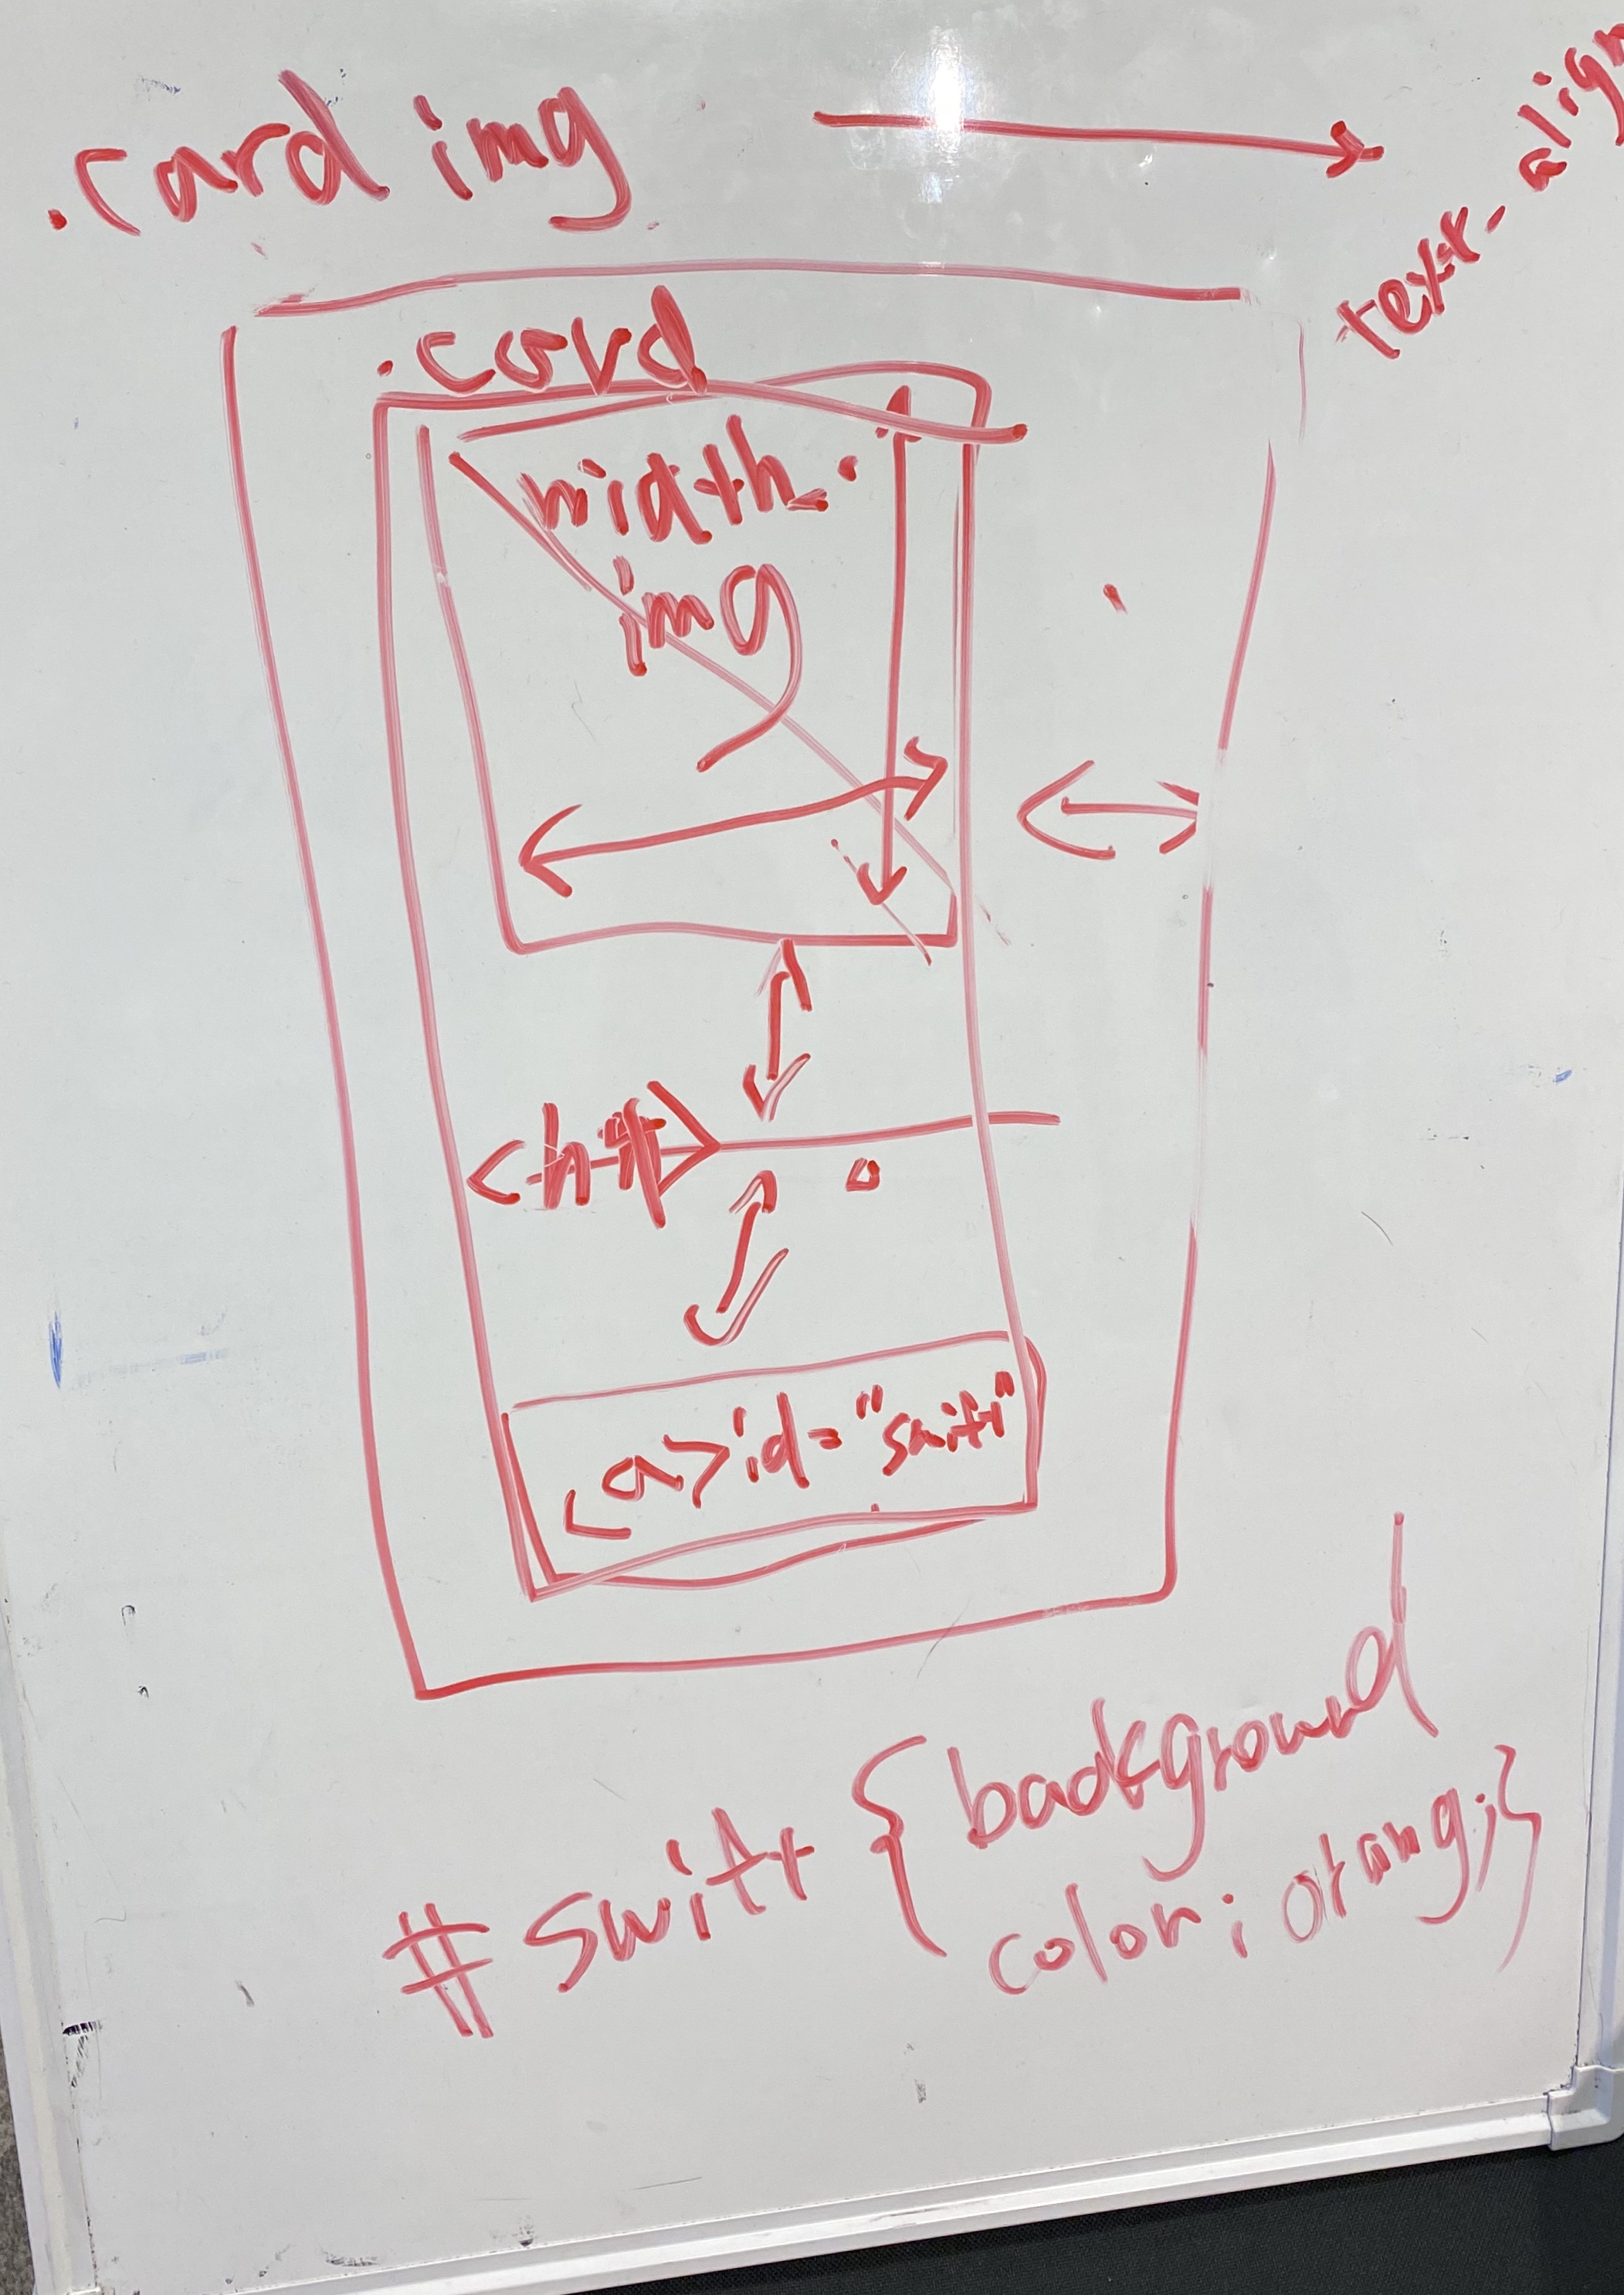 .card img
text-align
.card
width
img
<h4>
<a>id="swift"
#swift {background
color: orang;}